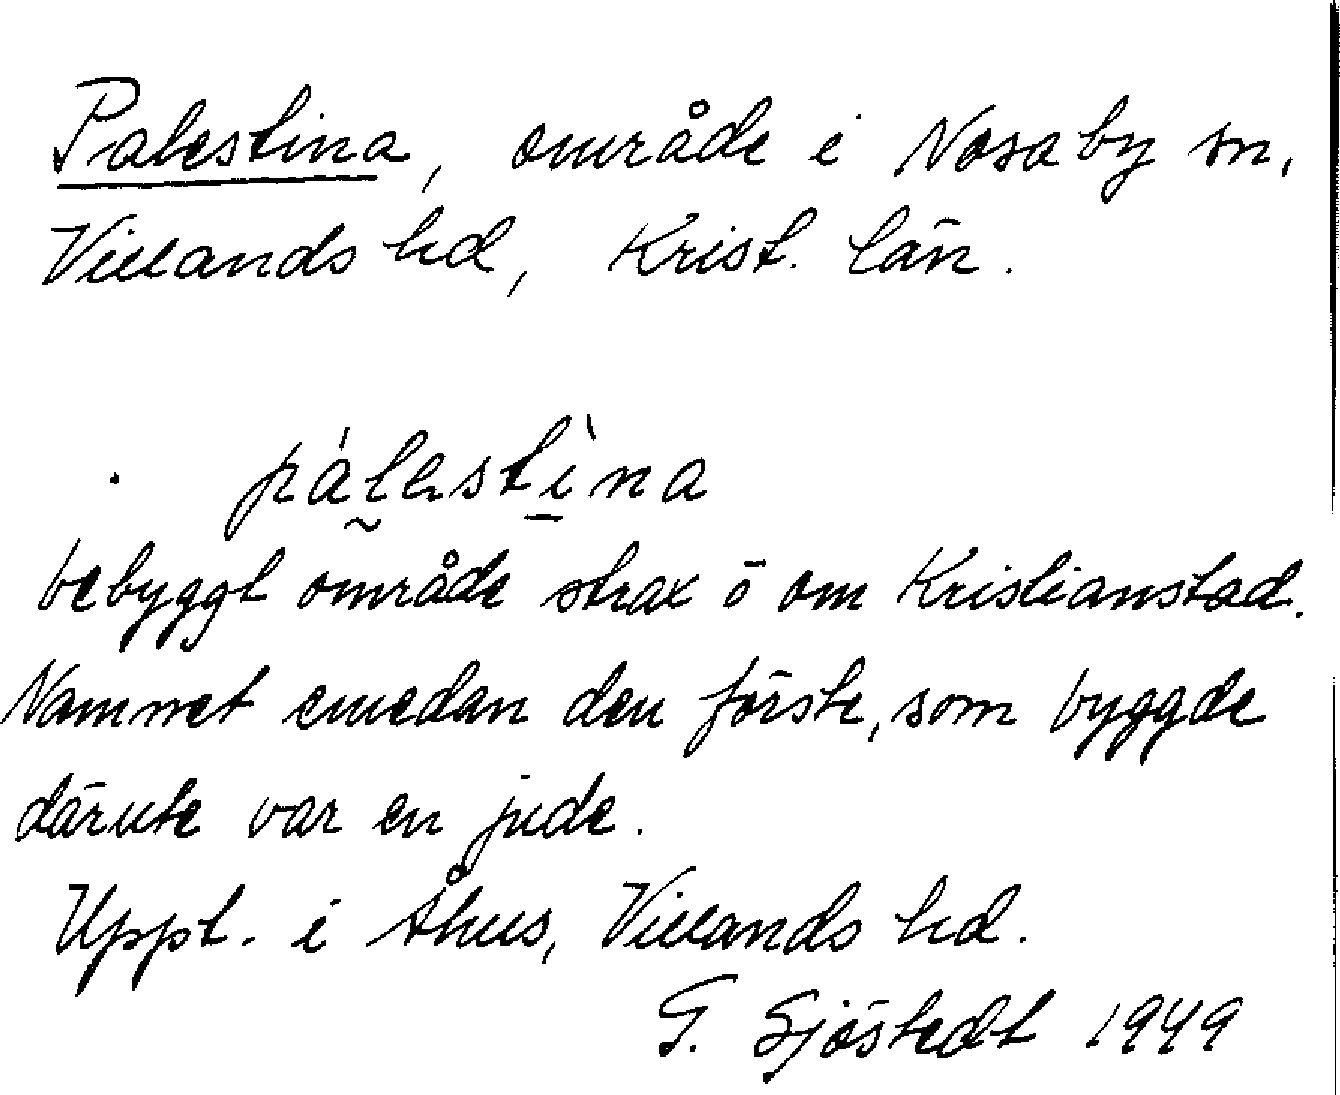 Palestina, område i Nosaby sn,
Villands hd, Krist. län.
pálestìna
bebyggt område strax ö om Kristianstad.
Namnet emedan den förste, som byggde
därute var en jude.
Uppt. i Åhus, Villands hd.
G. Sjöstedt 1949